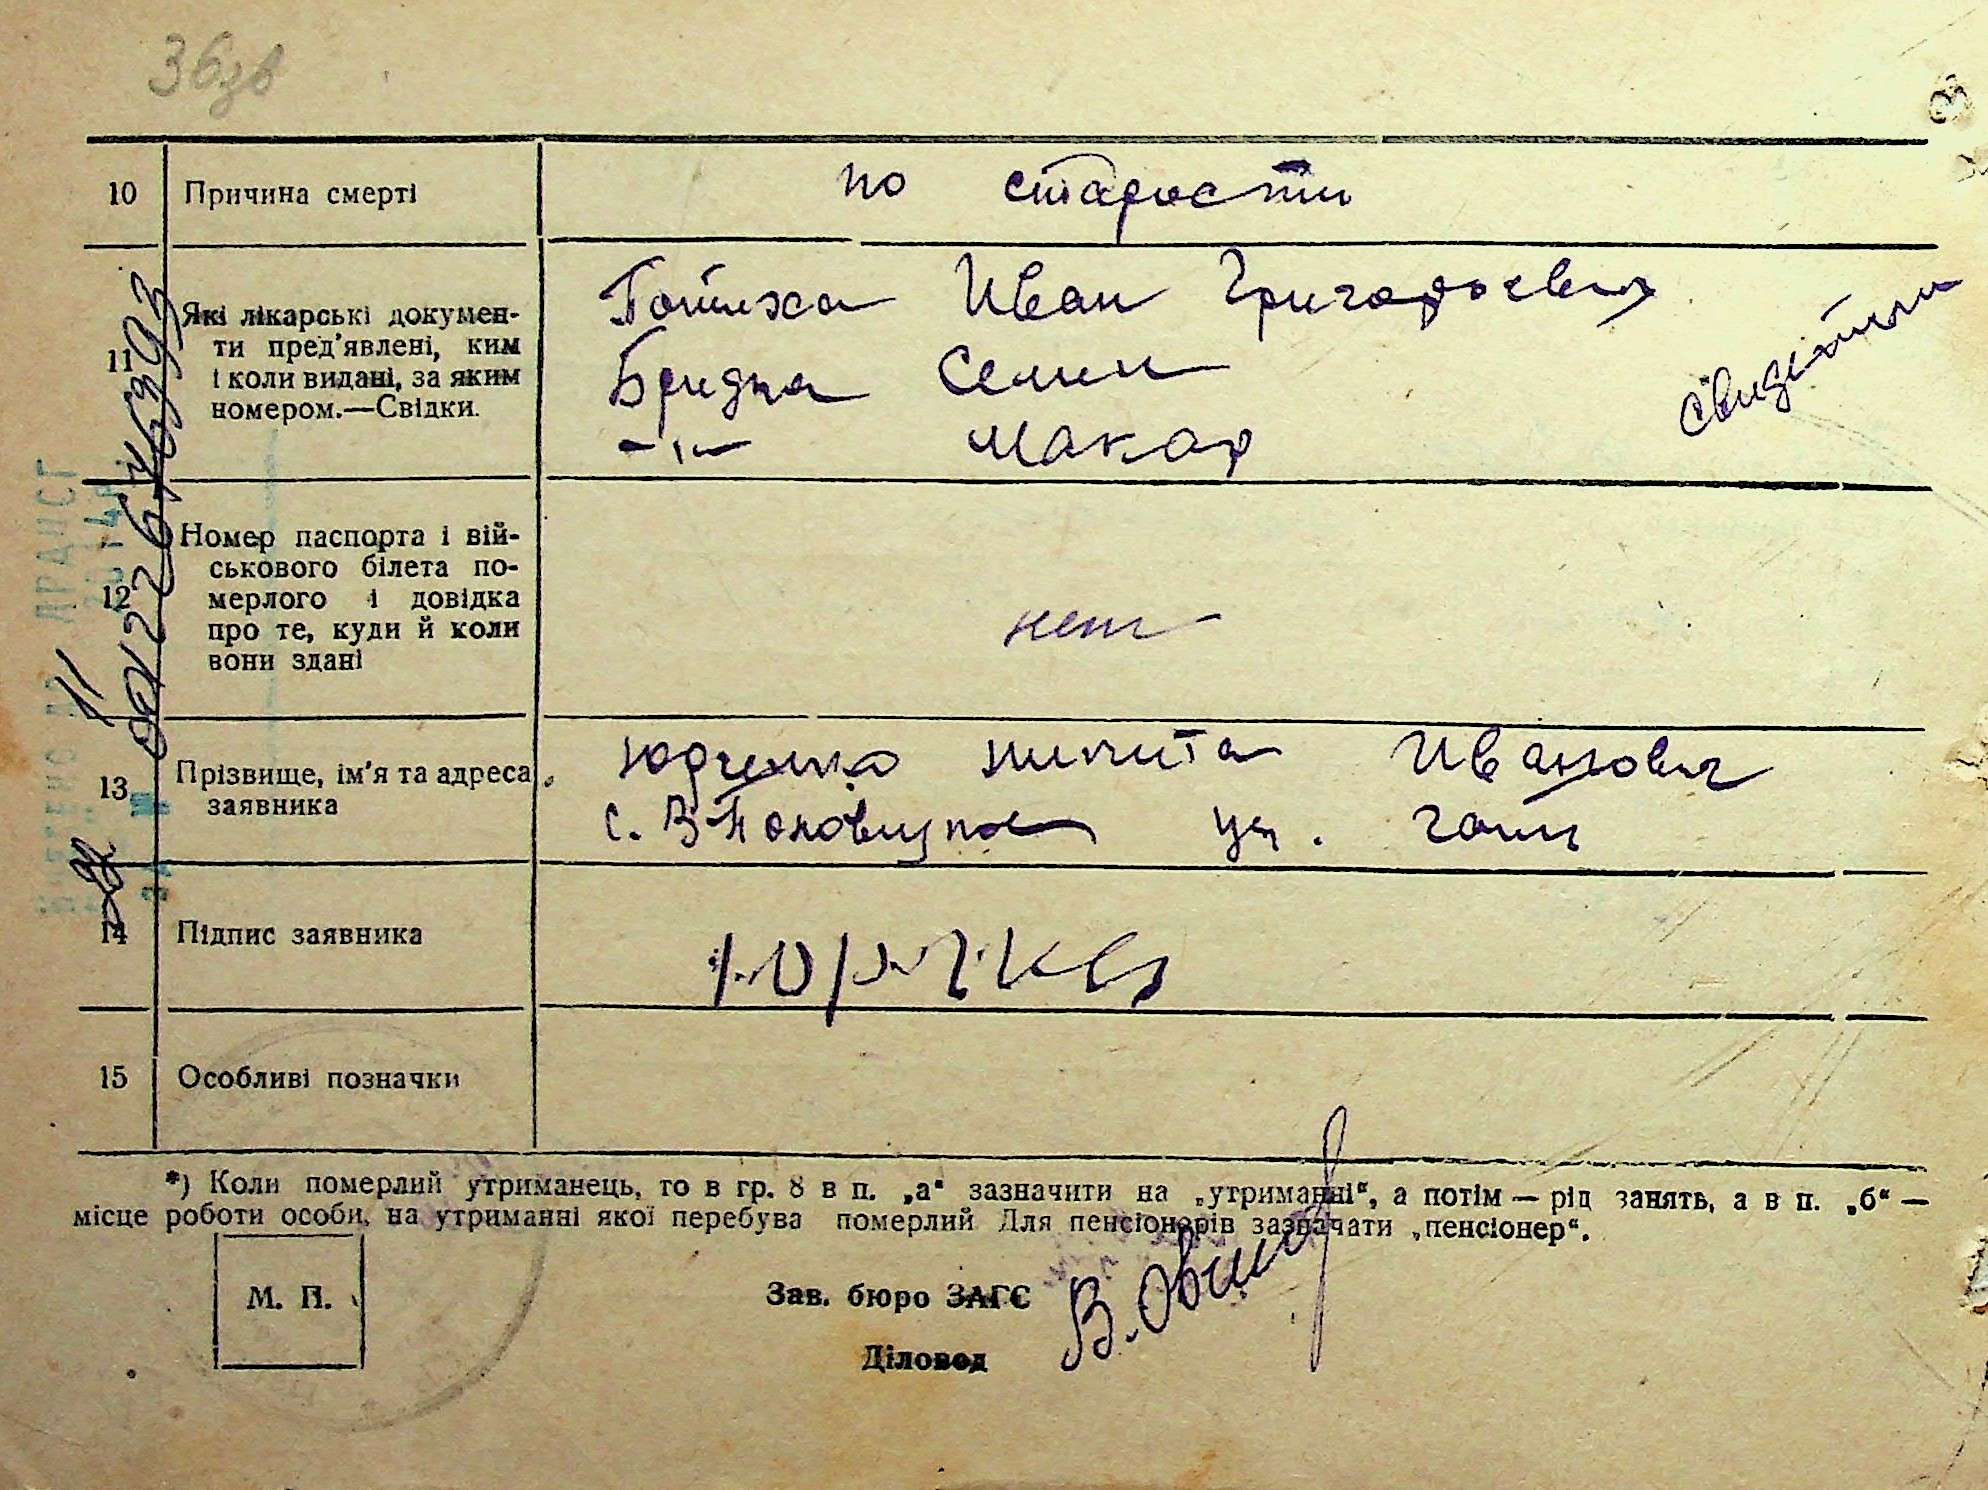 36зв
10 Причина смерті по старости
11 Які лікарські докумен-
ти пред'явлені, ким
і коли видані, за яким
номером.—Свідки.
Иван Григорьевич
Бридна Семен
-"- Макар
12 Номер паспорта і вій-
ськового білета по-
мерлого і довідка
про те, куди й коли
вони здані
нет
13 Прізвище, ім'я та адреса
заявника
Юрченко Никита Иванович
с. В-Половецкое ул.
14 Підпис заявника
15 Особливі позначки
*) Коли померлий утриманець, то в гр. 8 в п. „а“ зазначити на „утриманні“, а потім — рід занять, а в п. „б“ —
місце роботи особи, на утриманні якої перебува померлий Для пенсіонерів зазначати „пенсіонер“.
М. П.
Зав. бюро ЗАГС
Діловод